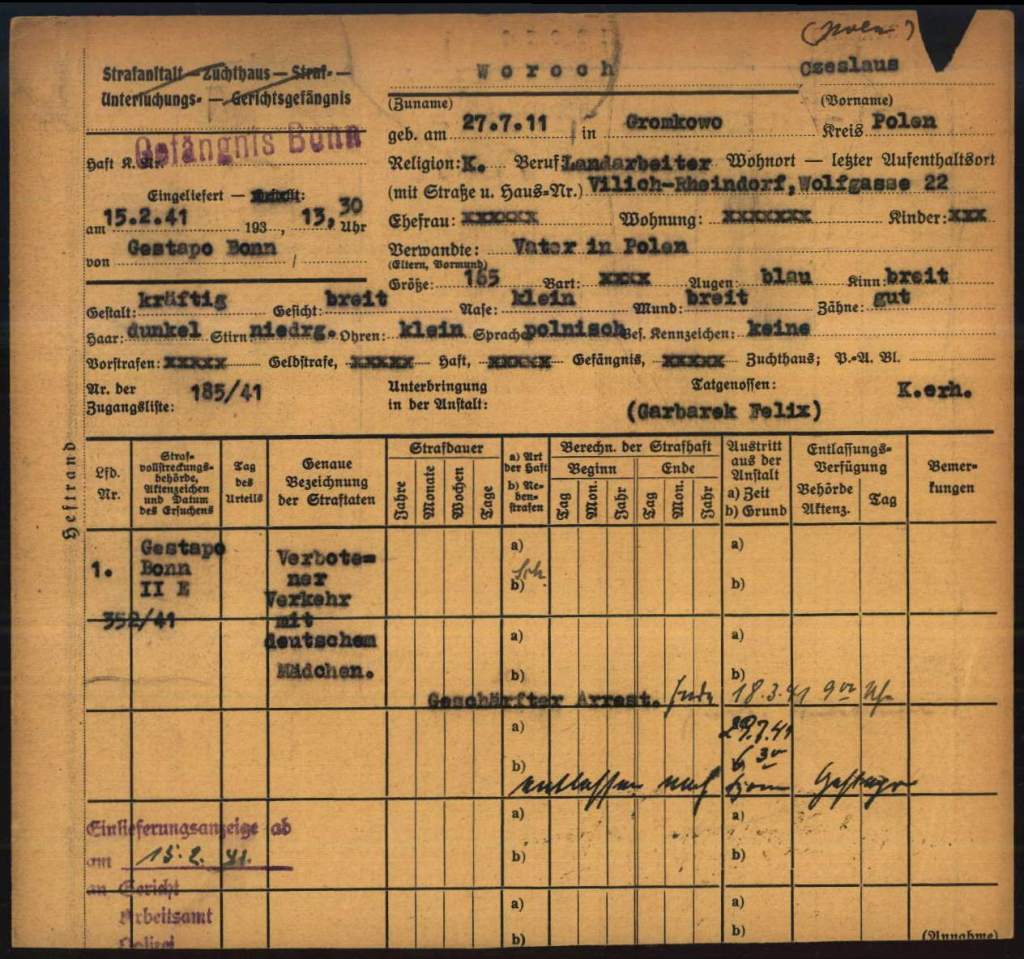 (Pole)
Strafanstalt — Zuchthaus — Straf- —
Untersuchungs- — Gerichtsgefängnis
Woroch Czeslaus
(Zuname) (Vorname)
Gefängnis Bonn
Haft K. Nr.
geb. am 27.7.11 in Gromkowo Kreis Polen
Religion: K. Beruf Landarbeiter Wohnort — letzter Aufenthaltsort
(mit Straße u. Haus-Nr.) Vilich-Rheindorf, Wolfgasse 22
Eingeliefert —
am 15.2.41 193 , 13,30 Uhr
von Gestapo Bonn
Ehefrau: xxxxxx Wohnung: xxxxxxx Kinder: xxx
Verwandte: Vater in Polen
(Eltern, Vormund)
Größe: 165 Bart: xxxx Augen: blau Kinn: breit
Gestalt: kräftig Gesicht: breit Nase: klein Mund: breit Zähne: gut
Haar: dunkel Stirn niedrg. Ohren: klein Sprache polnisch Bes. Kennzeichen: keine
Vorstrafen: xxxxx Geldstrafe, xxxxx Haft, xxxxx Gefängnis, xxxxx Zuchthaus; P.-A. Bl.
Nr. der
Zugangsliste: 185/41
Unterbringung
in der Anstalt:
Tatgenossen:
(Garbarek Felix)
K.erh.
Heftrand
Lfd.
Nr.
Straf-
vollstreckungs-
behörde,
Aktenzeichen
und Datum
des Ersuchens
Tag
des
Urteils
Genaue
Bezeichnung
der Straftaten
Strafdauer
Jahre Monate Wochen Tage
a) Art
der Haft
b) Ne-
ben-
strafen
Berechn. der Strafhaft
Beginn Ende
Tag Mon. Jahr Tag Mon. Jahr
Austritt
aus der
Anstalt
a) Zeit
b) Grund
Entlassungs-
Verfügung
Behörde
Aktenz.
Tag
Bemer-
kungen
1.
Gestapo
Bonn
II E
352/41
Verbote=
ner
Verkehr
mit
deutschem
Mädchen.
a)
b)
a)
b)
a)
b)
a)
b)
Geschärfter Arrest. Ende 18.3.41 9 00 Uhr
a)
b)
29.7.41
6 30
entlassen nach Gestapo
Einlieferungsanzeige ab
am 15.2.41.
an Gericht
Arbeitsamt
Polizei
a)
b)
a)
b)
a)
b)
a)
b)
(Annahme)